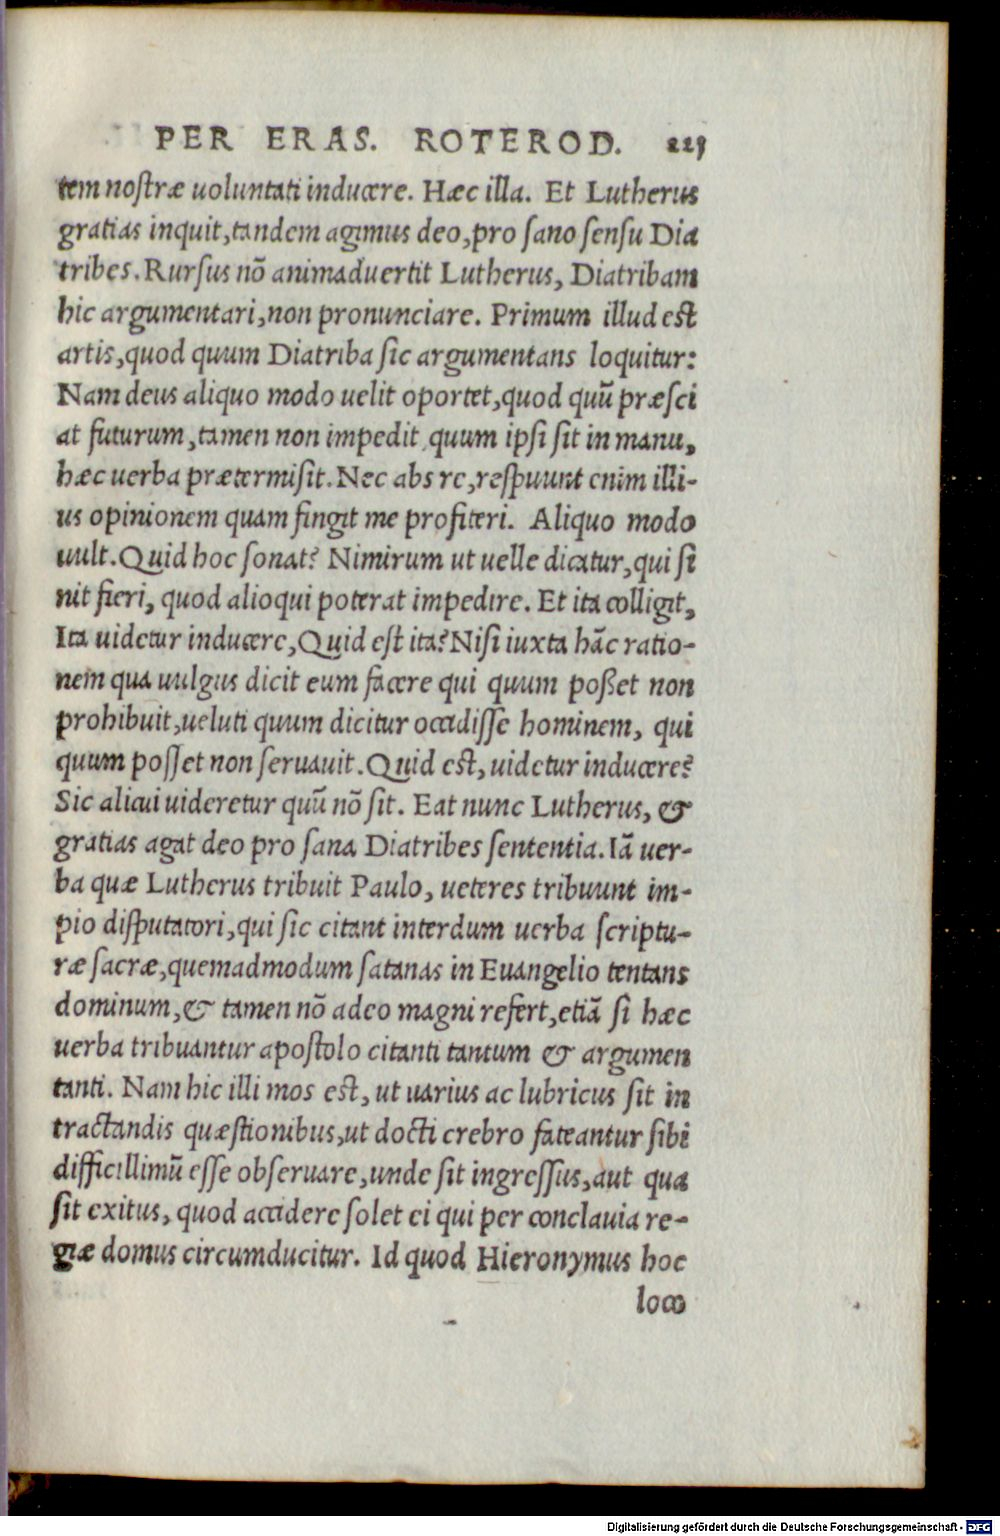 PER ERAS. ROTEROD. 225
tem nostræ uoluntati inducere. Hæc illa. Et Lutherus
gratias inquit,tandem agimus deo,pro sano sensu Dia
tribes. Rursus nō animaduertit Lutherus, Diatribam
hic argumentari,non pronunciare. Primum illud est
artis,quod quum Diatriba sic argumentans loquitur:
Nam deus aliquo modo uelit oportet,quod quū præsci
at futurum,tamen non impedit quum ipsi sit in manu,
hæc uerba prætermisit. Nec abs re,respuunt enim illi-
us opinionem quam fingit me profiteri. Aliquo modo
uult. Quid hoc sonat? Nimirum ut uelle dicatur,qui si
nit fieri, quod alioqui poterat impedire. Et ita colligit,
Ita uidetur inducere,Quid est ita? Nisi iuxta hāc ratio-
nem qua uulgus dicit eum facere qui quum poßet non
prohibuit,ueluti quum dicitur occidisse hominem, qui
quum posset non seruauit. Quid est, uidetur inducere?
Sic alicui uideretur quū nō sit. Eat nunc Lutherus, &
gratias agat deo pro sana Diatribes sententia. Iā uer-
ba quæ Lutherus tribuit Paulo, ueteres tribuunt im-
pio disputatori,qui sic citant interdum uerba scriptu-
ræ sacræ,quemadmodum satanas in Euangelio tentans
dominum,& tamen nō adeo magni refert,etiā si hæc
uerba tribuantur apostolo citanti tantum & argumen
tanti. Nam hic illi mos est, ut uarius ac lubricus sit in
tractandis quæstionibus,ut docti crebro fateantur sibi
difficillimū esse obseruare,unde sit ingressus,aut qua
sit exitus, quod accidere solet ei qui per conclauia re-
giæ domus circumducitur. Id quod Hieronymus hoc
loco
Digitalisierung gefördert durch die Deutsche Forschungsgemeinschaft - DFG